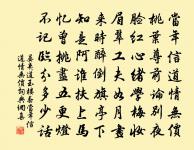 當年信道情無價
桃葉尊前論別夜
臉紅心緒學梅妝
眉翠工夫如月畫
來時醉倒旗亭下
知是阿誰扶上馬
憶曾挑盡五更燈
不記臨分多少話
晏幾道玉樓春當年信
道情無價